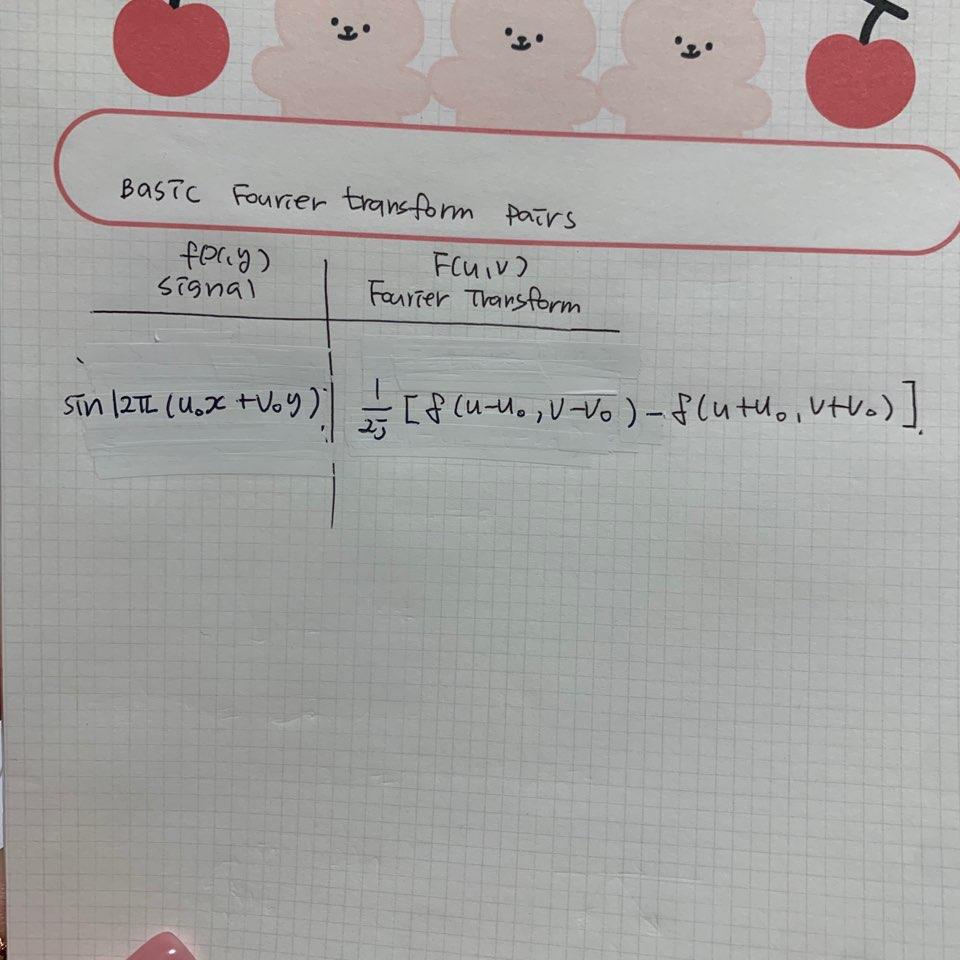 Basic Fourier transform pairs
f(x,y) F(u,v)
signal Fourier Transform
sin|2π(u₀x+v₀y)| 1/2j [δ(u-u₀,v-v₀)-δ(u+u₀,v+v₀)].